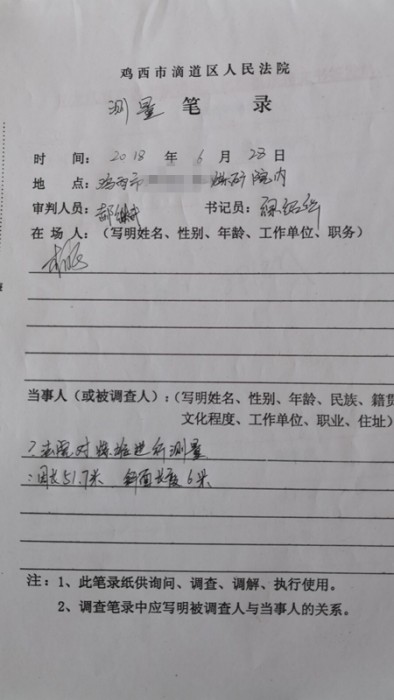 鸡西市滴道区人民法院
测量笔录
时 间: 2018 年 6 月 28 日
地 点: 鸡西市 煤矿院内
审判人员: 郝 书记员:
在 场 人:(写明姓名、性别、年龄、工作单位、职务)
当事人(或被调查人):(写明姓名、性别、年龄、民族、籍贯
文化程度、工作单位、职业、住址)
?法院对煤堆进行测量
:周长51.7米 斜面长度6米
注:1、此笔录纸供询问、调查、调解、执行使用。
2、调查笔录中应写明被调查人与当事人的关系。